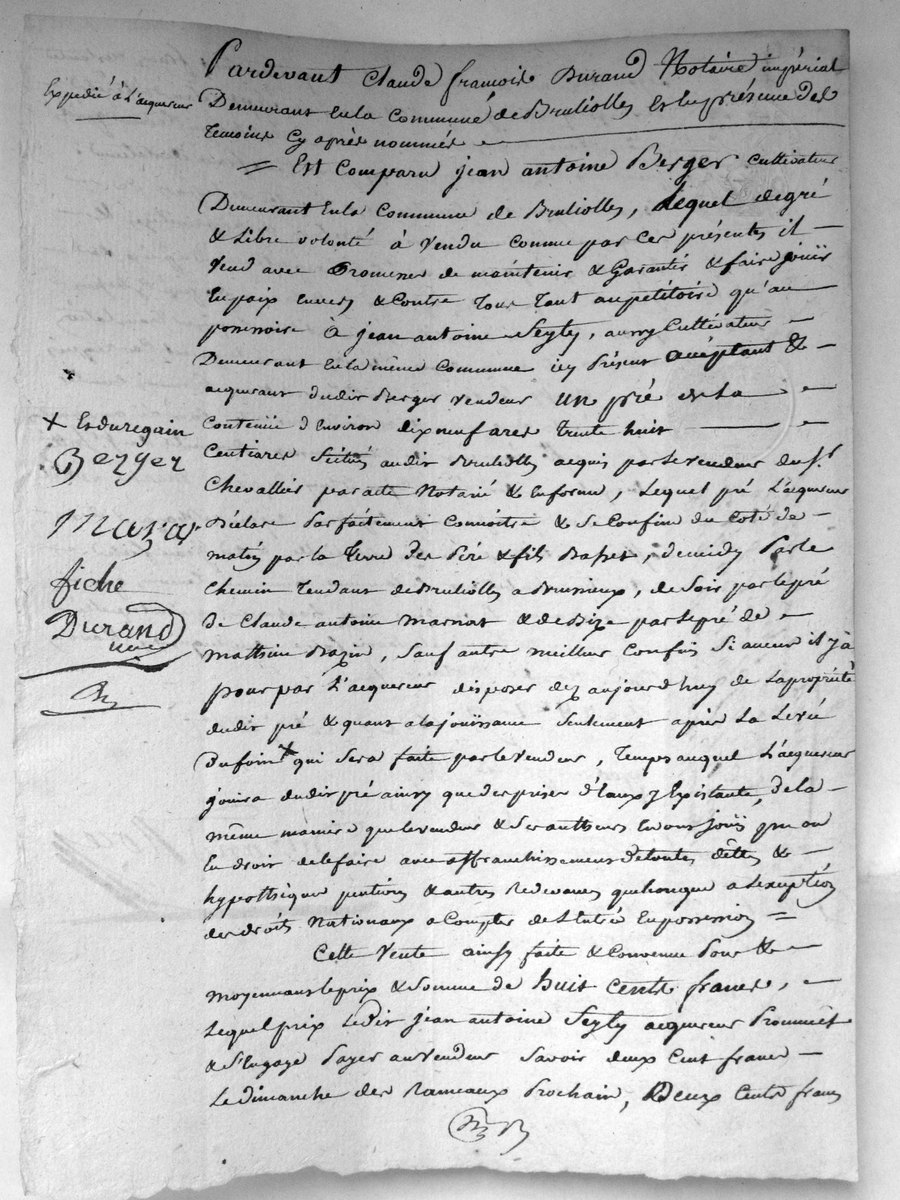 Expedié à L'acquereur
Pardevant Claude françois Durand Notaire impérial
Demeurant En la Commune de Bruliolles Et En présence des
temoins Cy après nommés
Est Comparu jean antoine Berger Cultivateur
Demeurant En la Commune de Bruliolles, Lequel de gré
& Libre volonté à Vendu Comme par Ces présentes il
Vend avec Promesses de maintenir & Garantir & faire jouïr
En paix Envers & Contre tous tant au pétitoire qu'au
possessoire à jean antoine Seyty, aussy Cultivateur
Demeurant En la même Commune icy Présent acceptant &
acquerant dudit Berger Vendeur un pré de la
Contenüe d'Environ dix neuf ares trente huit
Centiares Scitués audit Bruliolles acquis par le vendeur du Sr.
Chevallier par acte Notarié & En forme, Lequel pré L'acquereur
Déclare Parfaitement Connoître & Se Confine du Coté de
matin par la terre des Péré & fils Basset, de midy Par le
Chemin tendant de Bruliolles a Brussieux, de Soir par le pré
de Claude antoine & de Bize par le pré de
mathieu Bazin, Sauf autre meilleur Confins Si aucun il y à
pour par L'acquereur disposer dez aujourd'huy de La propriété
dudit pré & quant a la jouïssance Seulement après La Levée
Du foin x qui Sera faite par le Vendeur, temps auquel L'acquereur
jouira dudit pré ainsy que des prises d'Eaux y Existante, de la
même maniere que le vendeur & Ses autheurs En ont jouïs ou
En droit de le faire avec affranchissement de toutes dettes &
hypothèques pentions & autres Redevances quelconque a L'exception
des droits Nationaux a Compter de L'Entrée En possession
Cette Vente ainsy faite & Convenüe Pour &
moyennant le prix & Somme de huit Cents francs,
Lequel prix Ledit jean antoine Seyty acquereur Promet
& S'Engage Payer au Vendeur Savoir deux Cent francs
Le dimanche des Rameaux Prochain, Deux Cents francs
x Et du regain
Berger
fiche
Durand